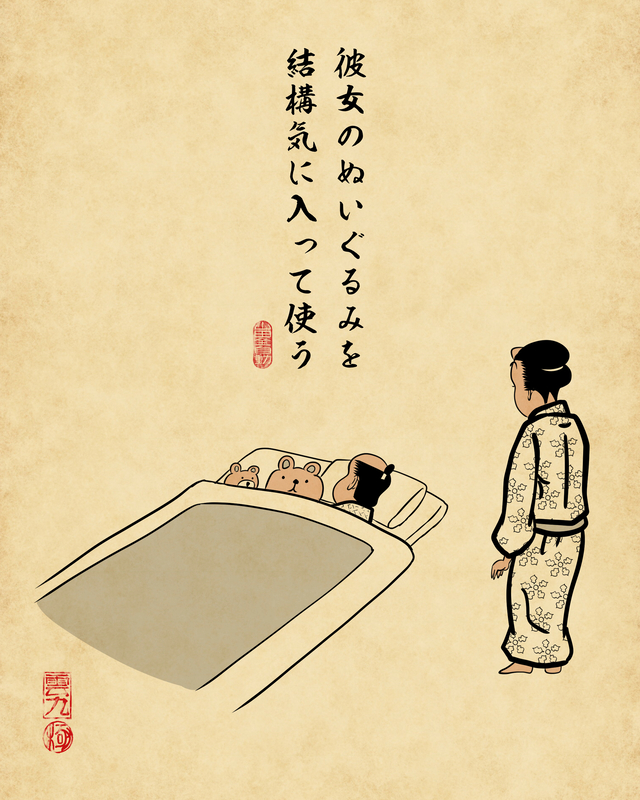 彼女のぬいぐるみを
結構気に入って使う